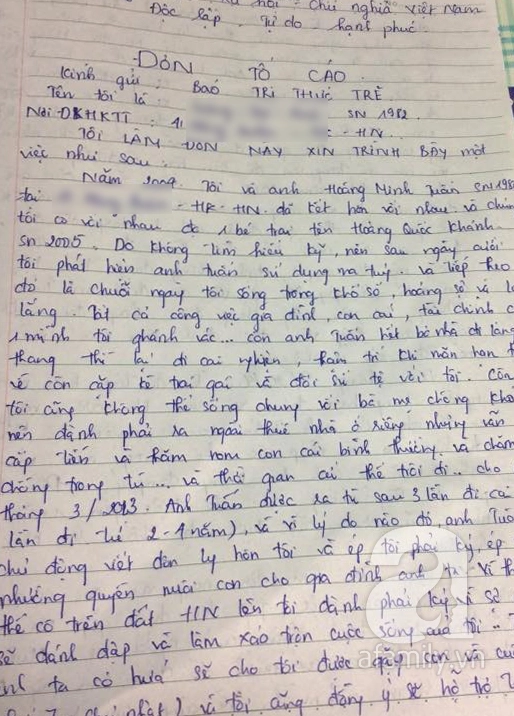 hội - Chủ nghĩa Việt Nam
Độc lập - Tự do hạnh phúc.
ĐƠN TỐ CÁO
Kính gửi: BÁO TRI THỨC TRẺ
Tên tôi là: SN 1982
Nơi ĐKHKTT: - HN.
TÔI LÀM ĐƠN NAY XIN TRÌNH BÀY một
việc như sau:
Năm 2004. Tôi và anh Hoàng Minh Tuấn SN 198
tại - HK - HN. đã kết hôn với nhau và chún
tôi có với nhau đc 1 bé trai tên Hoàng Quốc Khánh
SN 2005. Do không tìm hiểu kỹ, nên sau ngày cưới
tôi phát hiện anh Tuấn sử dụng ma tuý. và tiếp theo
đó là chuỗi ngày tôi sống trong khổ sở, hoảng sợ và l
lắng. Tất cả công việc gia đình, con cái, tài chính c
1 mình tôi ghánh vác... còn anh Tuấn hết bỏ nhà đi lang
thang thì lại đi cai nghiện, thậm trí khi mãn hạn t
về còn cặp kè trai gái và đối sử tệ với tôi. Còn
tôi cũng không thể sống chung với bố mẹ chồng kho
nên đành phải ra ngoài thuê nhà ở riêng nhưng vẫn
cấp tiền và thăm nom con cái bình thường và chăm
chồng trong tù... và thời gian cứ thế trôi đi.. cho
tháng 3/2013. Anh Tuấn được ra tù sau 3 lần đi cả
lần đi từ 2-4 năm), và vì lý do nào đó, anh Tuấ
chủ động viết đơn ly hôn tôi và ép tôi phải ký, ép
nhường quyền nuôi con cho gia đình anh ta. Vì th
thế cô trên đất HN lên tôi đành phải ký vì sợ
sẽ đánh đập và làm xáo trộn cuộc sống của tôi..
anh ta có hứa sẽ cho tôi được gặp con và cuố
chủ nhật) và tôi cũng đồng ý sẽ hỗ trợ
afamily.vn